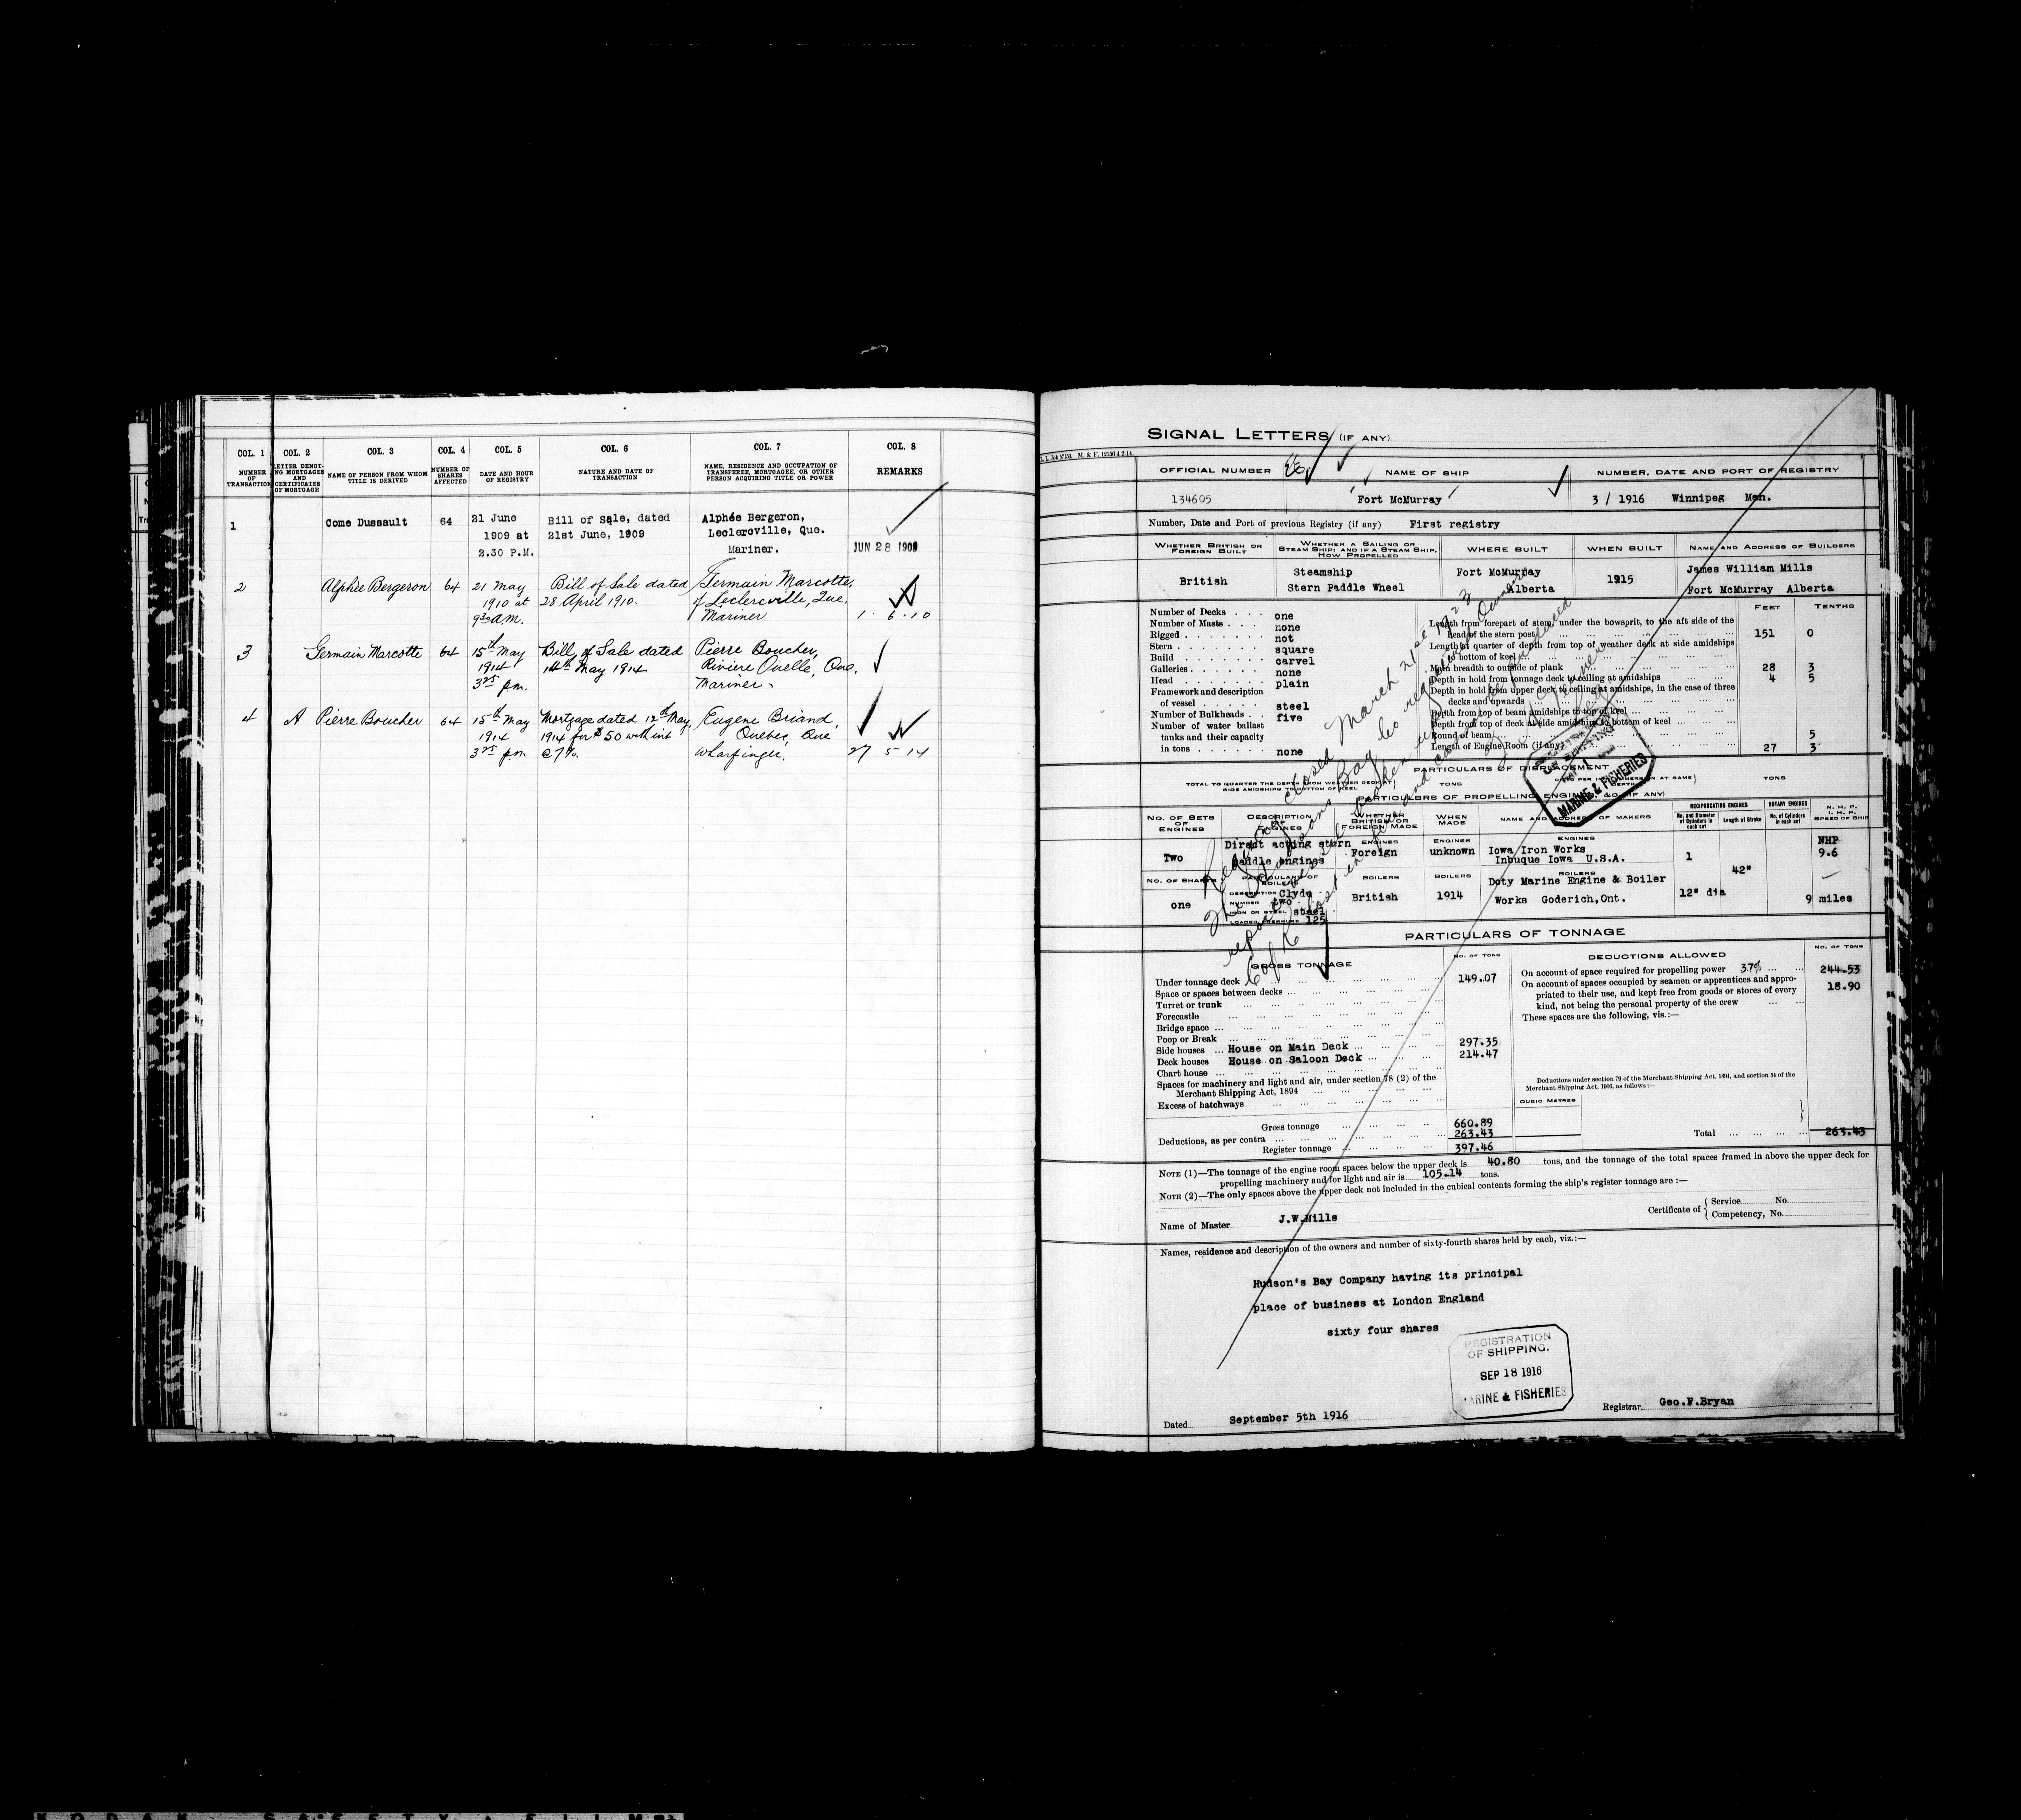 COL. 1
NUMBER OF TRANSACTION
COL. 2
LETTER DENOTING MORTGAGES AND CERTIFICATES OF MORTGAGE
COL. 3
NAME OF PERSON FROM WHOM TITLE IS DERIVED
COL. 4
NUMBER OF SHARES AFFECTED
COL. 5
DATE AND HOUR OF REGISTRY
COL. 6
NATURE AND DATE OF TRANSACTION
COL. 7
NAME, RESIDENCE AND OCCUPATION OF TRANSFEREE, MORTGAGEE, OR OTHER PERSON ACQUIRING TITLE OR POWER
COL. 8
REMARKS
1 Come Dussault 64 21 June Bill of Sale, dated Alphée Bergeron,
1909 at 21st June, 1909 Leclercville, Que.
2.30 P.M. Mariner. JUN 28 1909
2 Alphée Bergeron 64 21 May Bill of Sale dated Germain Marcotte,
1910 at 28 April 1910. of Leclercville, Que.
9 30 A.M. Mariner 1 . 6 . 10
3 Germain Marcotte 64 15th May Bill of Sale dated Pierre Boucher,
1914 14th May 1914 Riviere Ouelle, Que.
3 25 p.m. Mariner
4 A Pierre Boucher 64 15th May Mortgage dated 12th May, Eugene Briand,
1914 1914 for $50 with int Quebec, Que
3 25 p.m @ 7%. Wharfinger. 27 5 14
SIGNAL LETTERS (IF ANY)
M. & F. 12156 4-2-14.
OFFICIAL NUMBER NAME OF SHIP NUMBER, DATE AND PORT OF REGISTRY
134605 Fort McMurray 3 / 1916 Winnipeg Man.
Number, Date and Port of previous Registry (if any) First registry
WHETHER BRITISH OR FOREIGN BUILT
WHETHER A SAILING OR STEAM SHIP; AND IF A STEAM SHIP, HOW PROPELLED
WHERE BUILT
WHEN BUILT
NAME AND ADDRESS OF BUILDERS
British Steamship Fort McMurray 1915 James William Mills
Stern Paddle Wheel Alberta Fort McMurray Alberta
FEET TENTHS
Number of Decks one
Number of Masts none
Rigged not
Stern square
Build carvel
Galleries none
Head plain
Framework and description
of vessel steel
Number of Bulkheads five
Number of water ballast
tanks and their capacity
in tons none
Length from forepart of stem, under the bowsprit, to the aft side of the
head of the stern post 151 0
Length at quarter of depth from top of weather deck at side amidships
to bottom of keel
Main breadth to outside of plank 28 3
Depth in hold from tonnage deck to ceiling at amidships 4 5
Depth in hold from upper deck to ceiling at amidships, in the case of three
decks and upwards
Depth from top of beam amidships to top of keel
Depth from top of deck at side amidships to bottom of keel
Round of beam 5
Length of Engine Room (if any) 27 3
closed March 21st 1923
MARINE & FISHERIES
PARTICULARS OF DISPLACEMENT
TOTAL TO QUARTER THE DEPTH FROM WEATHER DECK AT SIDE AMIDSHIPS TO BOTTOM OF KEEL TONS TONS
PARTICULARS OF PROPELLING ENGINES, &c. (IF ANY)
NO. OF SETS OF ENGINES
DESCRIPTION OF ENGINES
WHETHER BRITISH OR FOREIGN MADE
WHEN MADE
NAME AND ADDRESS OF MAKERS
RECIPROCATING ENGINES
No. and Diameter of Cylinders in each set
Length of Stroke
ROTARY ENGINES
No. of Cylinders in each set
N. H. P.
I. H. P.
SPEED OF SHIP
Two Direct acting stern paddle engines
ENGINES Foreign
ENGINES unknown
ENGINES Iowa Iron Works
Inbuque Iowa U.S.A.
1 42" NHP 9.6
NO. OF SHAFTS
one
PARTICULARS OF BOILERS
DESCRIPTION Clyde
NUMBER two
IRON OR STEEL steel
LOADED PRESSURE 125
BOILERS British
BOILERS 1914
BOILERS Doty Marine Engine & Boiler
Works Goderich, Ont.
12" dia 9 miles
PARTICULARS OF TONNAGE
GROSS TONNAGE NO. OF TONS
Under tonnage deck 149.07
Space or spaces between decks
Turret or trunk
Forecastle
Bridge space
Poop or Break
Side houses House on Main Deck 297.35
Deck houses House on Saloon Deck 214.47
Chart house
Spaces for machinery and light and air, under section 78 (2) of the
Merchant Shipping Act, 1894
Excess of hatchways
Gross tonnage 660.89
Deductions, as per contra 263.43
Register tonnage 397.46
DEDUCTIONS ALLOWED NO. OF TONS
On account of space required for propelling power 37% 244.53
On account of spaces occupied by seamen or apprentices and appro-
priated to their use, and kept free from goods or stores of every
kind, not being the personal property of the crew 18.90
These spaces are the following, viz.:—
Deductions under section 79 of the Merchant Shipping Act, 1894, and section 54 of the
Merchant Shipping Act, 1906, as follows:—
CUBIC METRES
Total 263.43
NOTE (1)—The tonnage of the engine room spaces below the upper deck is 40.80 tons, and the tonnage of the total spaces framed in above the upper deck for
propelling machinery and for light and air is 105.14 tons.
NOTE (2)—The only spaces above the upper deck not included in the cubical contents forming the ship's register tonnage are :—
Name of Master J.W.Mills
Certificate of { Service No.
Competency, No.
Names, residence and description of the owners and number of sixty-fourth shares held by each, viz.:—
Hudson's Bay Company having its principal
place of business at London England
sixty four shares
REGISTRATION
OF SHIPPING.
SEP 18 1916
MARINE & FISHERIES
Dated September 5th 1916
Registrar Geo.F.Bryan